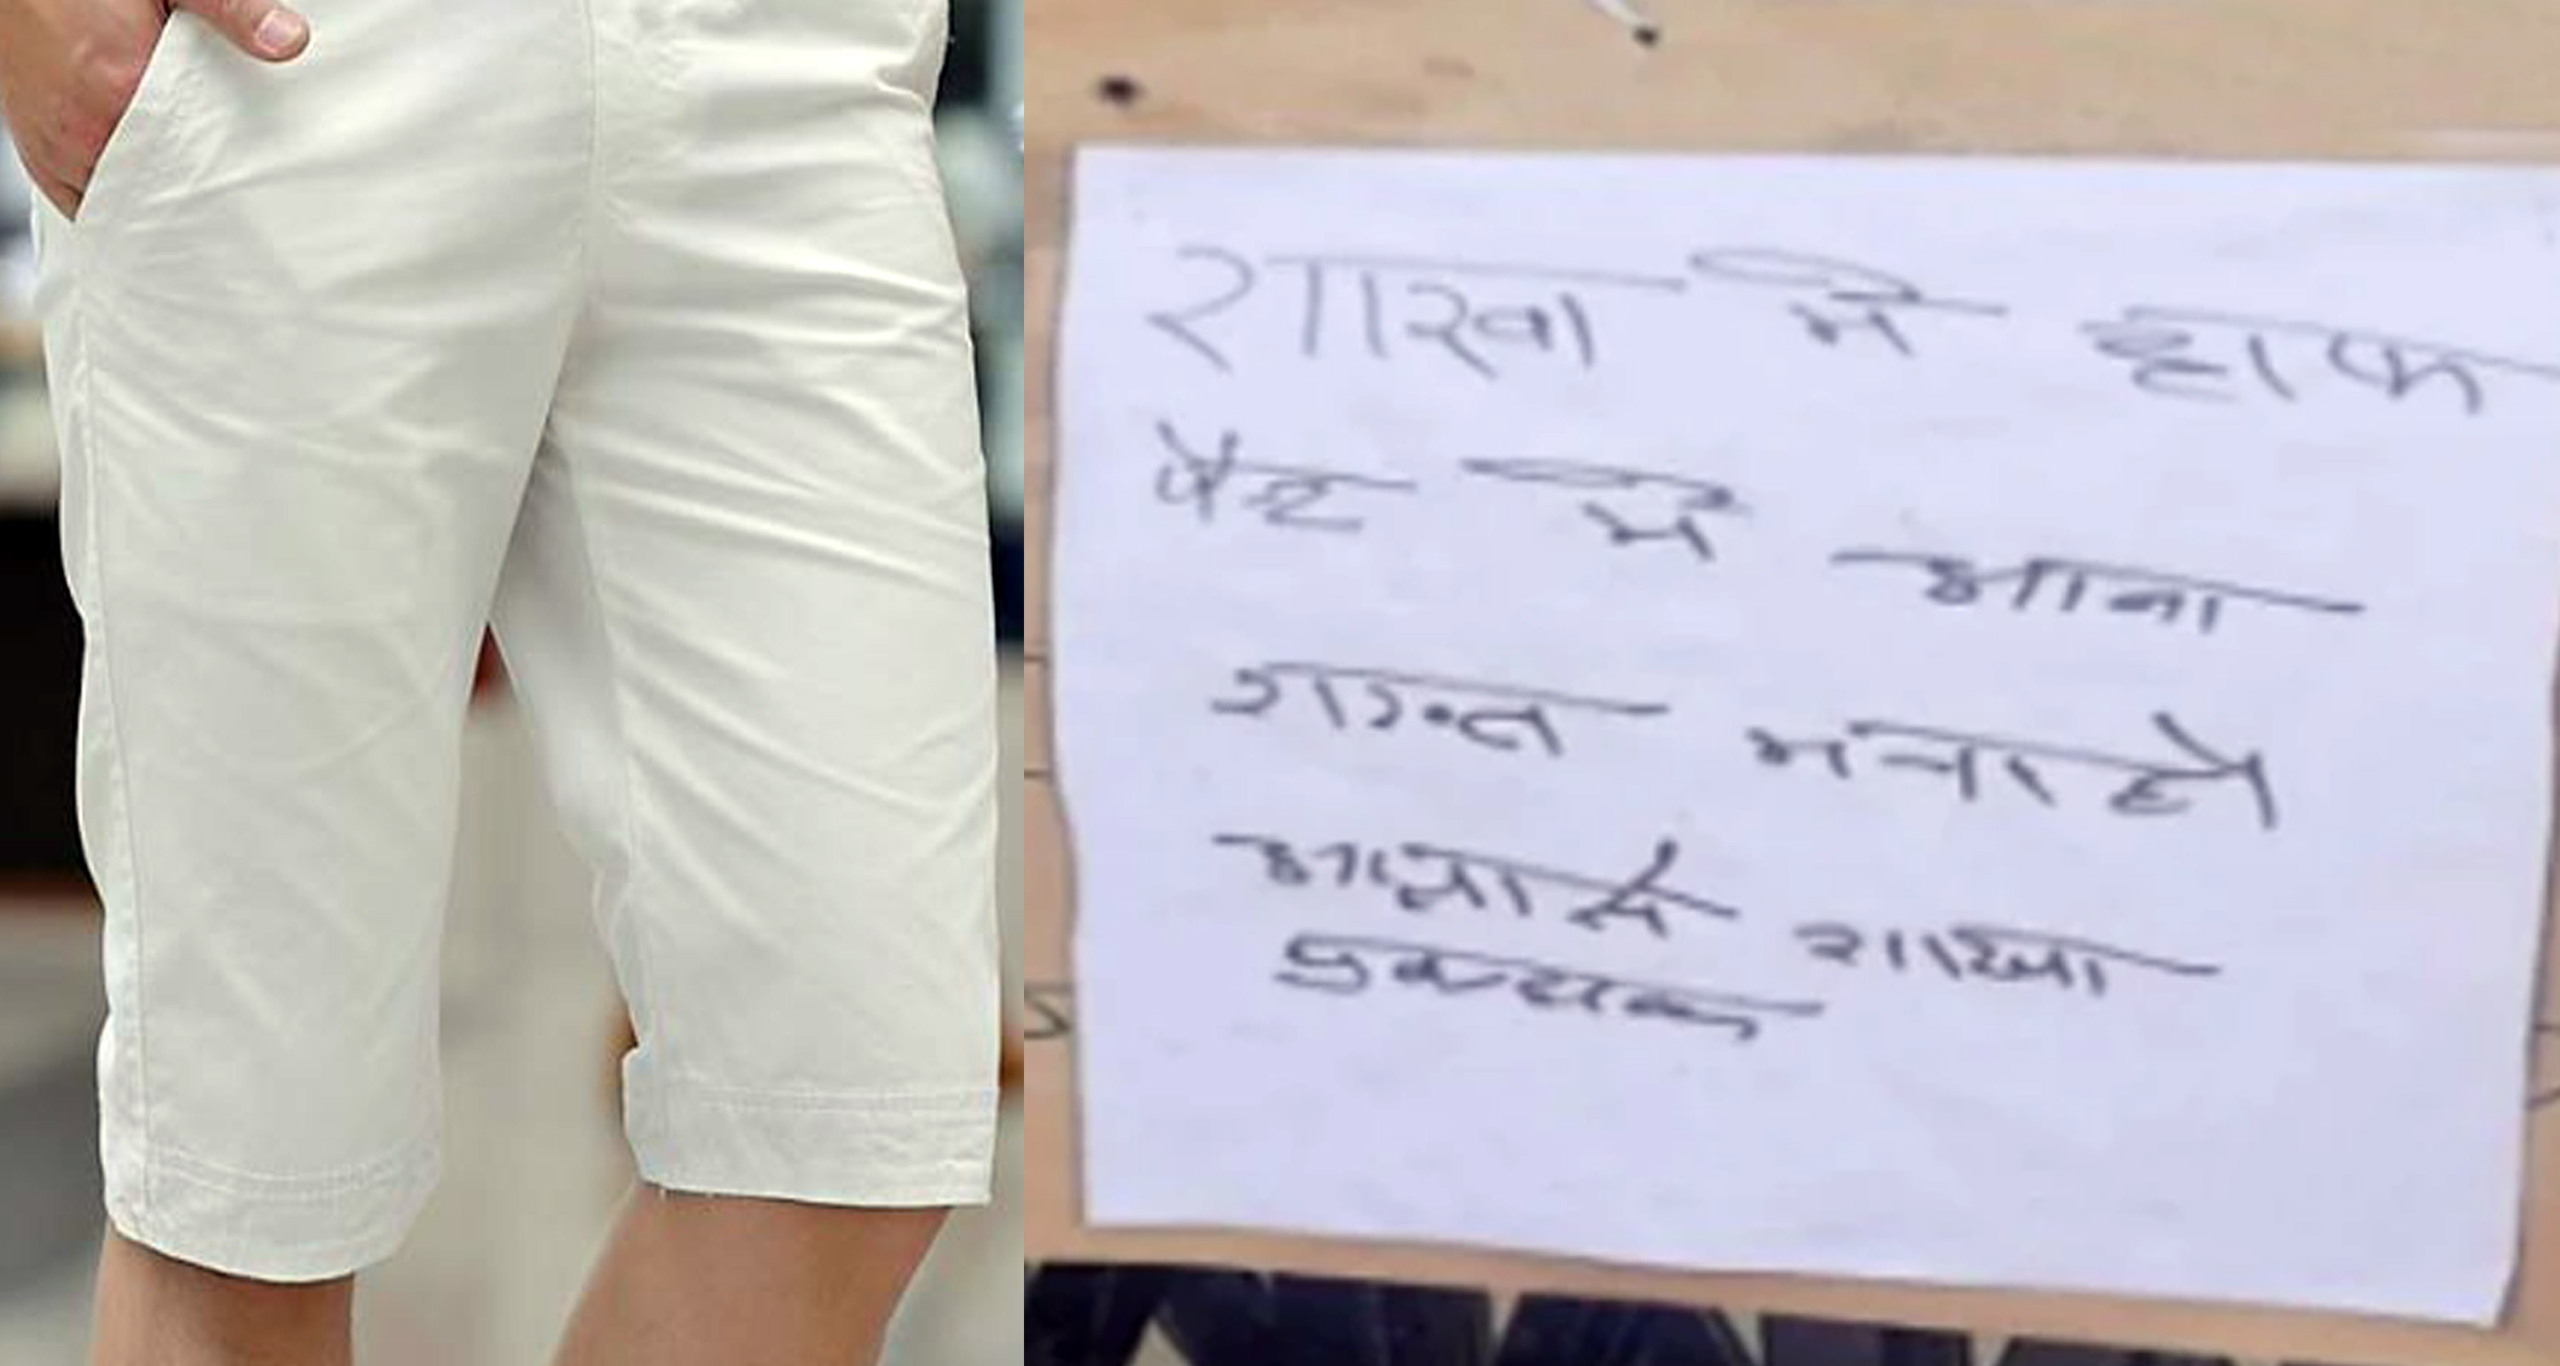 शाखा में हाफ
पेन्ट में आना
शख्त मना है।
आज्ञा से शाखा
प्रबन्धक